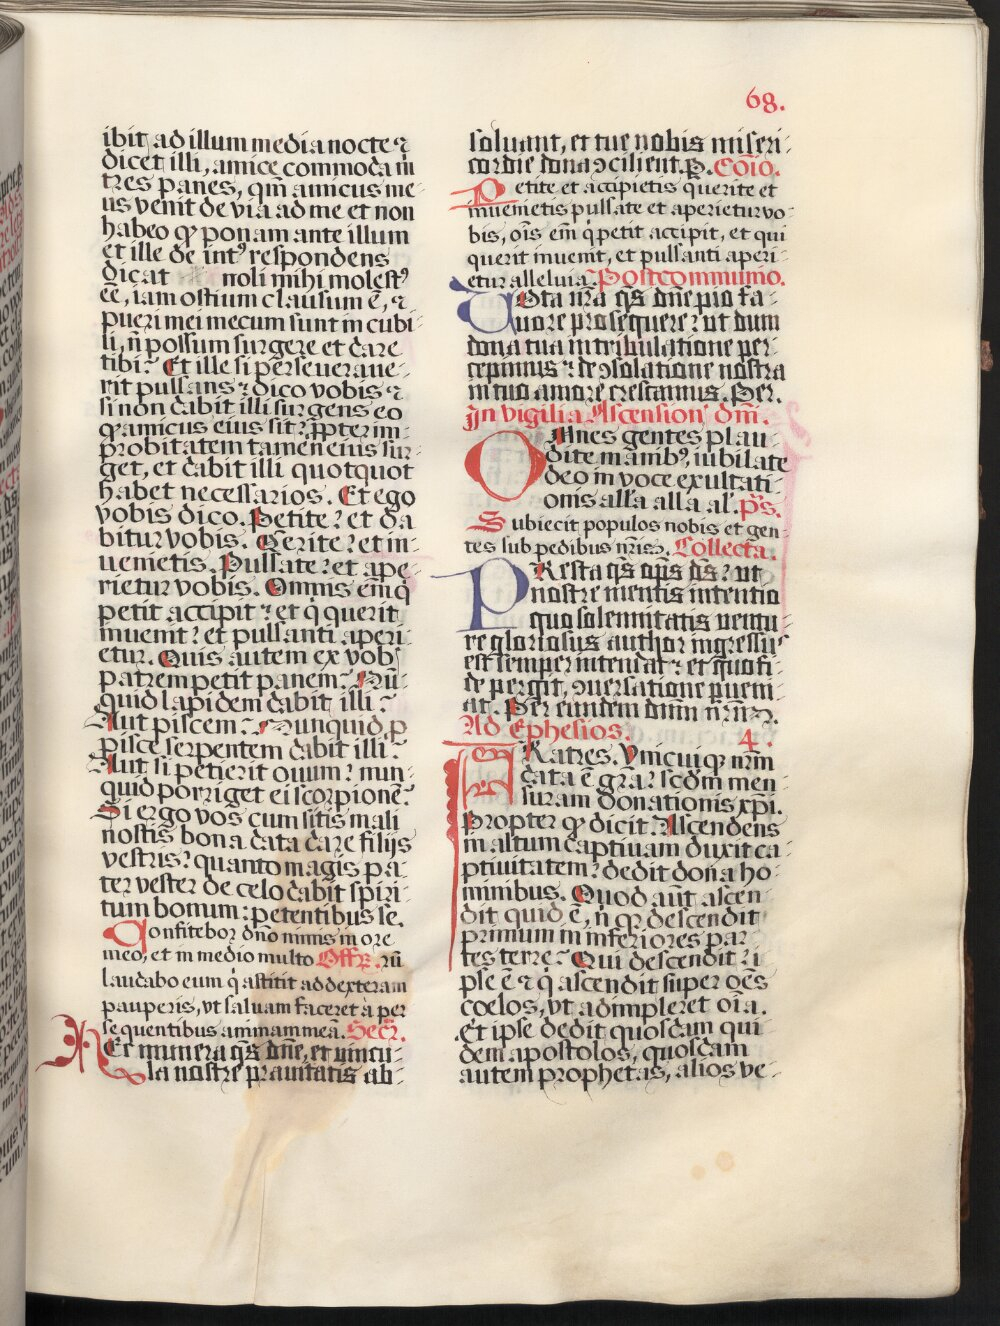 68.
ibit ad illum media nocte ⁊
dicet illi, amice commoda m̄
tres panes, qm̄ amicus me-
us venit de via ad me et non
habeo qͦ ponam ante illum
et ille de intꝰ respondens
dicat noli mihi molestꝰ
eē, iam ostium clausum ē, ⁊
pueri mei mecum sunt in cubi-
li, n̄ possum surgere et dare
tibi? Et ille si perseuerave-
rit pulsans: dico vobis ⁊
si non dabit illi surgens eo
qͦ amicus eius sit: ꝓpter im-
probitatem tamen eius sur-
get, et dabit illi quotquot
habet necessarios. Et ego
vobis dico. Petite: et da-
bitur vobis. Qerite: et in-
uenietis. Pulsate: et ape-
rietur vobis. Omnis em̄ q̇
petit accipit: et q̇ querit
inuenit: et pulsanti aperi-
etur. Quis autem ex vobꝭ
patrem petit panem: Nū-
quid lapidem dabit illi?
Aut piscem: Nunquid ꝓ
pisce serpentem dabit illi?
Aut si petierit ouum: nun-
quid porriget ei scorpionē?
Si ergo vos cum sitis mali
nostis bona data dare filijs
vestris: quanto magis pa-
ter vester de celo dabit spiri-
tum bonum: petentibus se.
Confitebor dn̄o nimis in ore
meo, et in medio multoꝝ Offꝝ.
laudabo eum q̇ astitit ad dexteram
pauperis, vt saluam faceret a per
sequentibus animam meā. Secr̄.
Hec munera qs̄ dn̄e, et vincu-
la nostre prauitatis ab-
soluant, et tue nobis miseri-
cordie dona ↄcilient. P. Cōio.
Petite et accipietis querite et
inuenietis pulsate et aperietur vo-
bis, oīs em̄ q̇ petit accipit, et qui
querit inuenit, et pulsanti aperi-
etur alleluia. Postcommunio.
Vota nr̄a qs̄ dn̄e pio fa-
uore prosequere: ut dum
dona tua in tribulatione per-
cepimus: de ↄsolatione nostra
in tuo amore crescamus. Per.
In vigilia Ascensionꝭ dn̄i.
Omnes gentes plau-
dite manibꝰ, iubilate
deo in voce exultati-
onis all'a all'a al'. ps̄.
Subiecit populos nobis et gen-
tes sub pedibus nr̄is. Collecta.
PResta qs̄ op̄s ds̄: ut
nostre mentis intentio
quo solennitatis ventu-
re gloriosus author ingressuꝰ
est semper intendat: et quo fi-
de pergit, ↄuersatione ꝑueni-
at. Per eundem dn̄m nr̄m.
Ad Ephesios. 4.
FRatres. Vnicuiqꝫ nr̄m
data ē gr̄a: scdm̄ men-
suram donationis xp̄i.
Propter qͦ dicit. Ascendens
in altum captiuam duxit ca-
ptiuitatem: dedit dona ho-
minibus. Quod aūt ascen-
dit quid ē, n̄ qꝛ descendit
primum in inferiores par-
tes terre? Qui descendit: i-
pse ē ⁊ q̇ ascendit super oēs
coelos, vt adimpleret oīa.
Et ipse dedit quosdam qui-
dem apostolos, quosdam
autem prophetas, alios ve-